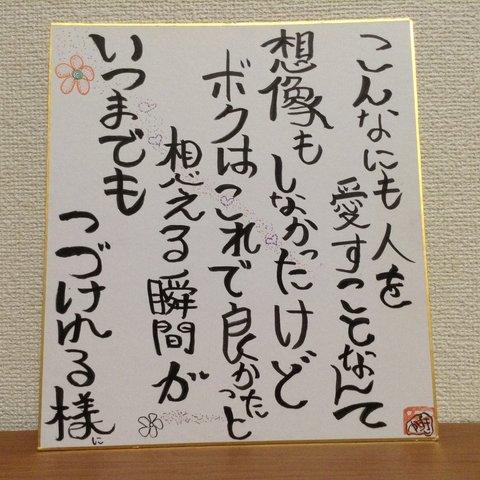 こんなにも人を
愛すことなんて
想像もしなかったけど
ボクはこれで良かったと
想える瞬間が
いつまでも
つづけれる様に